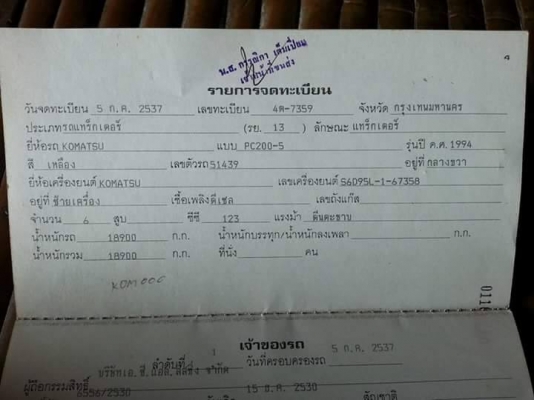 น.ส. กรรณิกา เต็มเปี่ยม
เจ้าหน้าที่ขนส่ง
4
รายการจดทะเบียน
วันจดทะเบียน 5 ก.ค. 2537 เลขทะเบียน 4ต-7359 จังหวัด กรุงเทพมหานคร
ประเภทรถแทร็กเตอร์ (รย. 13 ) ลักษณะ แทร็กเตอร์
ยี่ห้อรถ KOMATSU แบบ PC200-5 รุ่นปี ค.ศ. 1994
สี เหลือง เลขตัวรถ 51439 อยู่ที่ กลางขวา
ยี่ห้อเครื่องยนต์ KOMATSU เลขเครื่องยนต์ S6D95L-1-67358
อยู่ที่ ซ้ายเครื่อง เชื้อเพลิง ดีเซล เลขถังแก๊ส
จำนวน 6 สูบ ซีซี 123 แรงม้า ตีนตะขาบ
น้ำหนักรถ 18900 ก.ก. น้ำหนักบรรทุก/น้ำหนักลงเพลา ก.ก.
น้ำหนักรวม 18900 ก.ก. ที่นั่ง คน
KOM006
011
เจ้าของรถ
ลำดับที่ 1 วันที่ครอบครองรถ 5 ก.ค. 2537
ผู้ถือกรรมสิทธิ์ จำกัด
5556/2530 15 2530 สัญชาติ